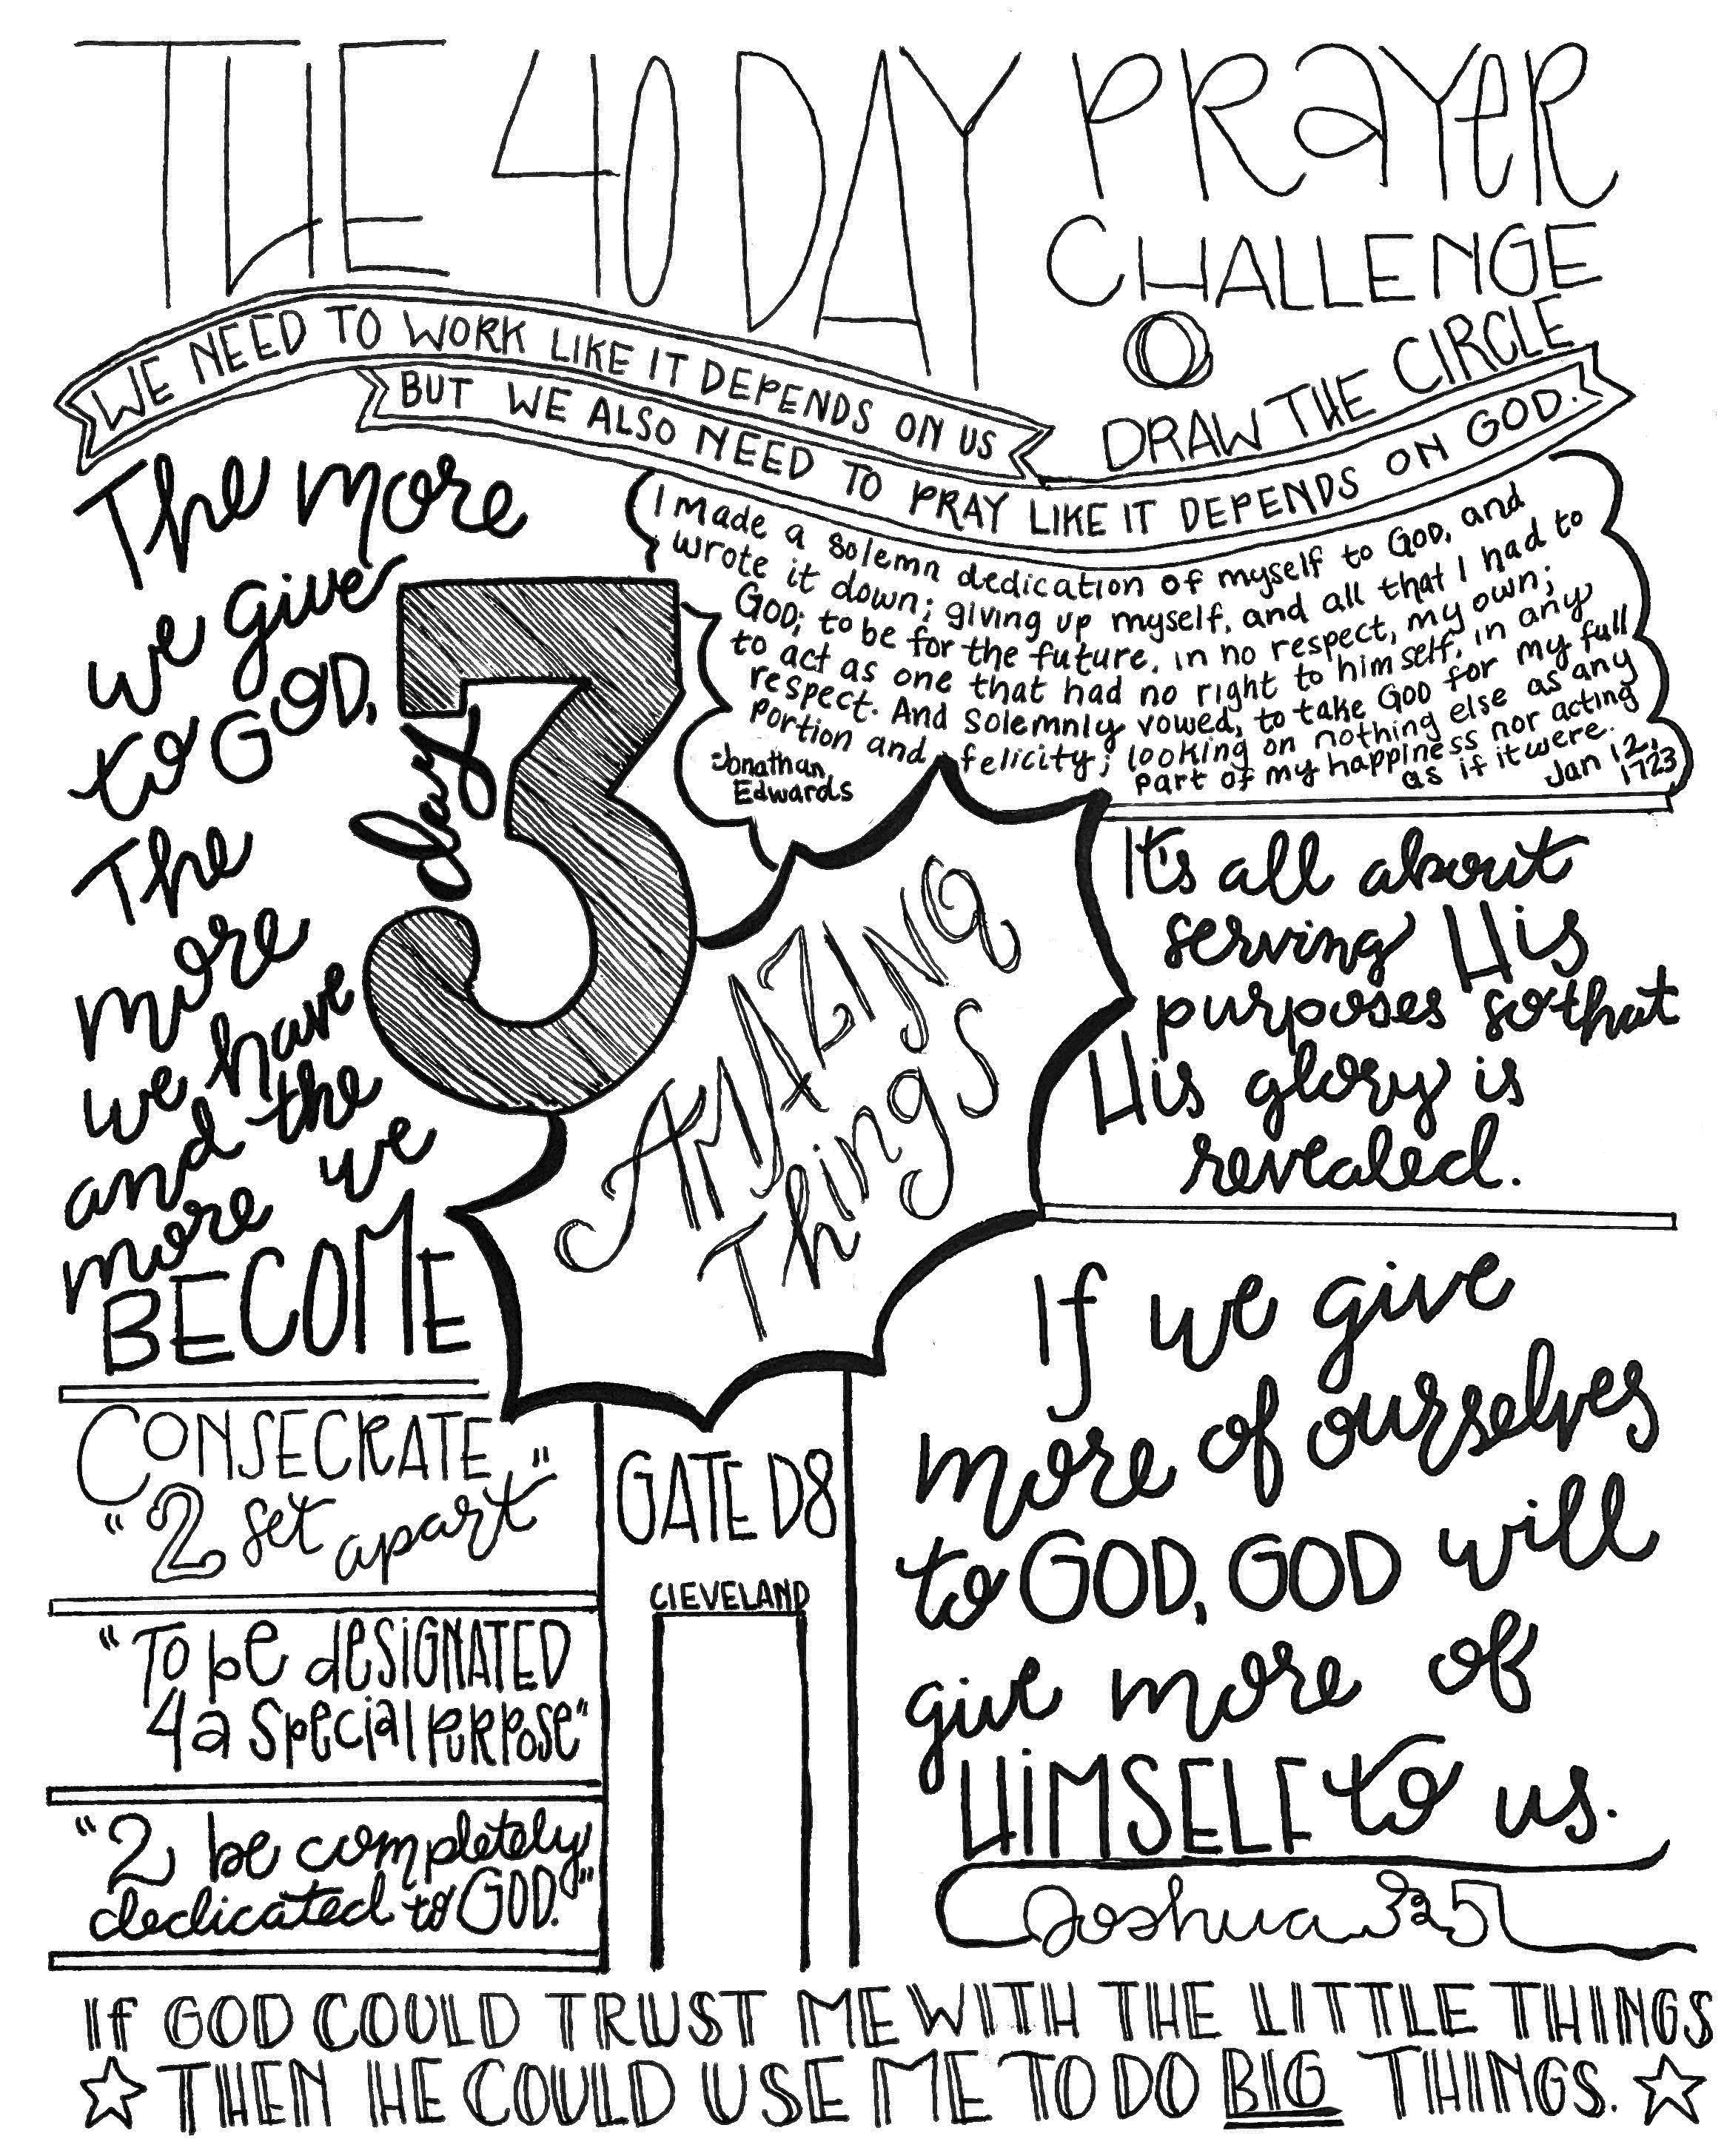 THE 40 DAY PRAYER
CHALLENGE
DRAW THE CIRCLE
WE NEED TO WORK LIKE IT DEPENDS ON US
BUT WE ALSO NEED TO PRAY LIKE IT DEPENDS ON GOD.
The more
we give
to GOD,
The
more
we have
and the
more we
BECOME
day
3
I made a solemn dedication of myself to God, and
wrote it down; giving up myself, and all that I had to
God; to be for the future, in no respect, my own;
to act as one that had no right to himself, in any
respect. And solemnly vowed, to take God for my full
portion and felicity; looking on nothing else as any
part of my happiness nor acting
as if it were.
Jan 12,
1723
-Jonathan
Edwards
AMAZING
Things
It's all about
serving His
purposes so that
His glory is
revealed.
CONSECRATE
"2 set apart"
"To be designated
4 a special purpose"
"2 be completely
dedicated to GOD."
GATE D8
CLEVELAND
If we give
more of ourselves
to GOD, GOD will
give more of
HIMSELF to us.
Joshua 3:5
If GOD COULD TRUST ME WITH THE LITTLE THINGS
THEN HE COULD USE ME TO DO BIG THINGS.